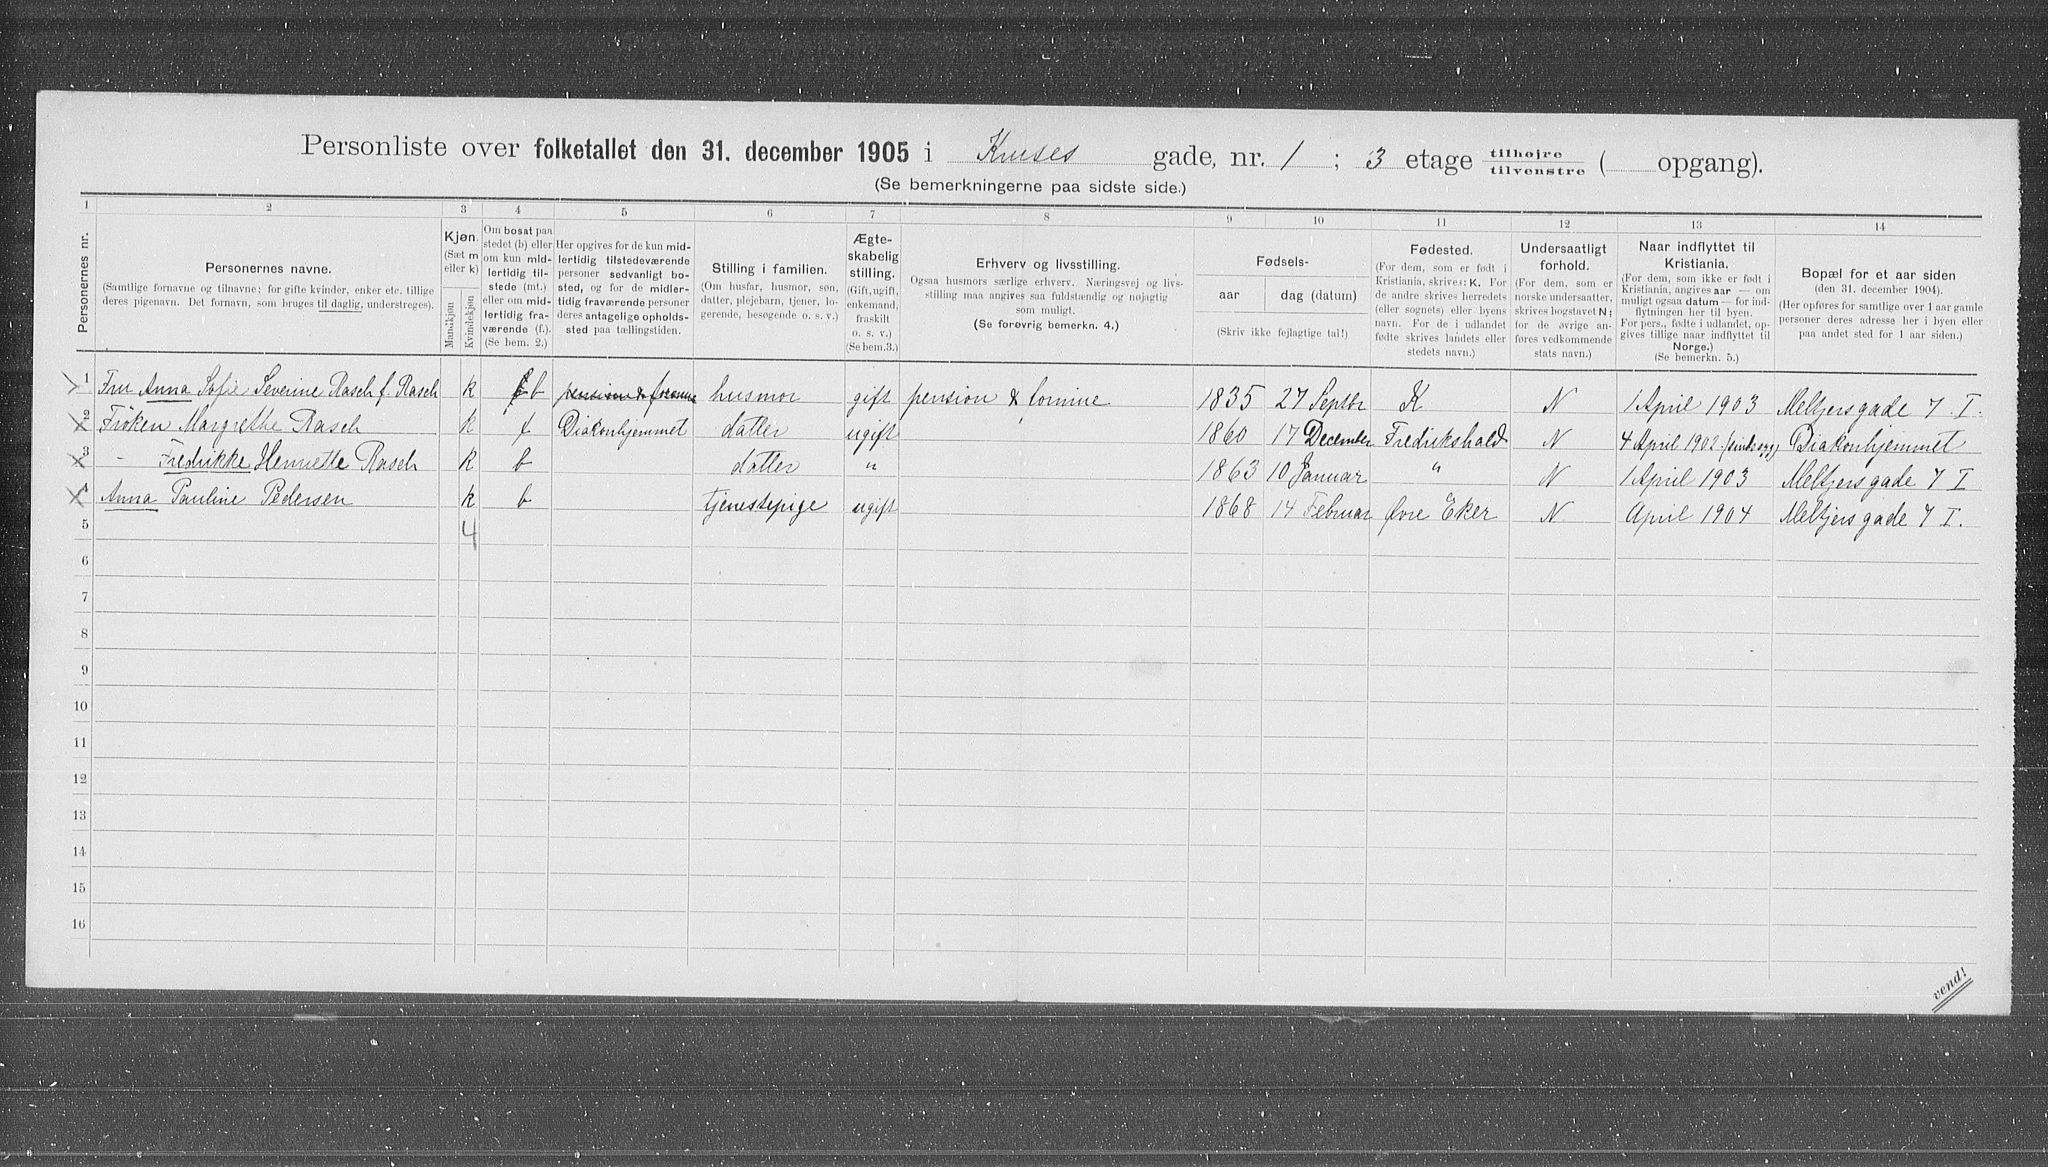 Personliste over folketallet den 31. december 1905 i Kruses gade, nr. 1 ; 3 etage tilhøjre tilvenstre ( opgang).
(Se bemerkningerne paa sidste side.)
1 2 3 4 5 6 7 8 9 10 11 12 13 14
Personernes nr.
Personernes navne.
(Samtlige fornavne og tilnavne; for gifte kvinder, enker etc. tillige deres pigenavn. Det fornavn, som bruges til daglig, understreges).
Kjøn.
(Sæt m eller k)
Mandkjøn
Kvindekjøn
Om bosat paa stedet (b) eller om kun midlertidig tilstede (mt.) eller om midlertidig fraværende (f.). (Se bem. 2.)
Her opgives for de kun midlertidig tilstedeværende personer sedvanligt bosted, og for de midlertidig fraværende personer deres antagelige opholdssted paa tællingstiden.
Stilling i familien.
(Om husfar, husmor, søn, datter, plejebarn, tjener, logerende, besøgende o. s. v.)
Ægteskabelig stilling.
(Gift, ugift, enkemand, fraskilt o. s. v.)
(Se bem.3.)
Erhverv og livsstilling.
Ogsaa husmors særlige erhverv. Næringsvej og livsstilling maa angives saa fuldstændig og nøjagtig som muligt.
(Se forøvrig bemerkn. 4.)
Fødsels-
aar
dag (datum)
(Skriv ikke fejlagtige tal!)
Fødested.
(For dem, som er født i Kristiania, skrives: K. For de andre skrives herredets (eller sognets) eller byens navn. For de i udlandet fødte skrives landets eller stedets navn.)
Undersaatligt forhold.
(For dem, som er norske undersaatter, skrives bogstavet N; for de øvrige anføres vedkommende stats navn.)
Naar indflyttet til Kristiania.
(For dem, som ikke er født i Kristiania, angives aar — om muligt ogsaa datum — for indflytningen her til byen. For pers., fødte i udlandet, opgives tillige naar indflyttet til Norge.)
(Se bemerkn. 5.)
Bopæl for et aar siden
(den 31. december 1904).
(Her opføres for samtlige over 1 aar gamle personer deres adresse her i byen eller paa andet sted for 1 aar siden.)
1 Fru Anna Sofie Severine Rasch f. Rasch k f b husmor gift pension & formue 1835 27 Septbr K N 1 April 1903 Meltzersgade 7 I.
2 Frøken Margrethe Rasch k f Diakonhjemmet datter ugift 1860 17 December Fredrikshald N 4 April 1902 Diakonhjemmet
3 - Fredrikke Henriette Rasch k b datter " 1863 10 Januar " N 1 April 1903 Meltzersgade 7 I
4 Anna Pauline Pedersen k b tjenestepige ugift 1868 14 Februar Øvre Eker N April 1904 Meltzers gade 7 I.
5 4
6
7
8
9
10
11
12
13
14
15
16
vend!